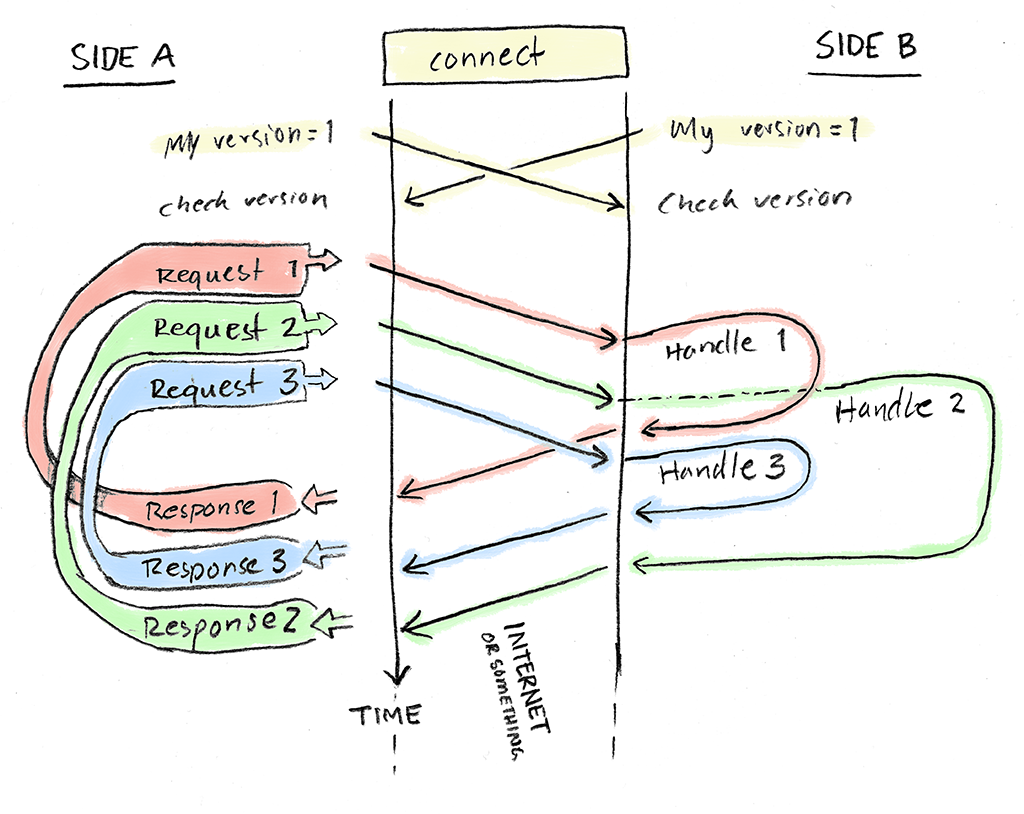 SIDE A
connect
SIDE B
My version=1
My version=1
check version
Check version
Request 1
Request 2
Request 3
Handle 1
Handle 2
Handle 3
Response 1
Response 3
Response 2
INTERNET
OR SOMETHING
TIME